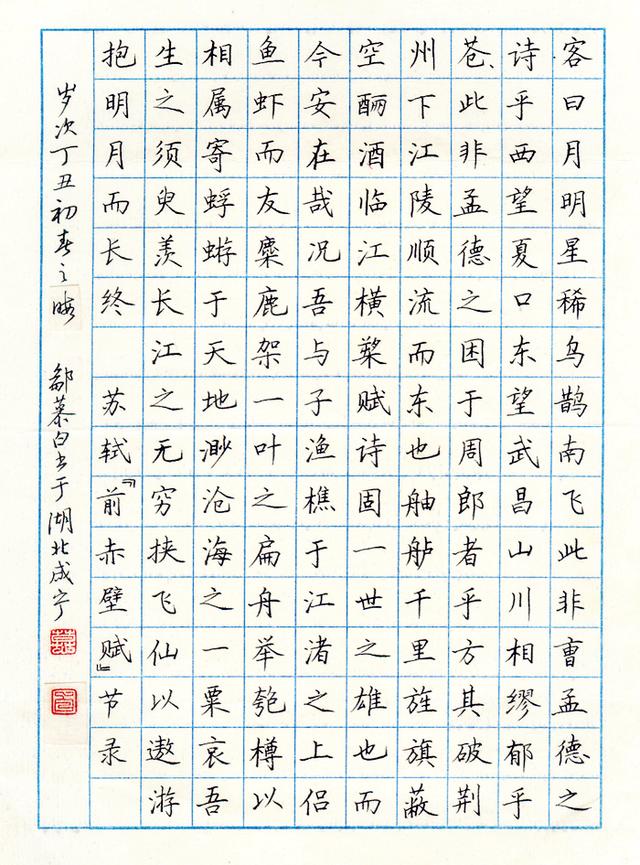 客曰月明星稀乌鹊南飞此非曹孟德之
诗乎西望夏口东望武昌山川相缪郁乎
苍、此非孟德之困于周郎者乎方其破荆
州下江陵顺流而东也舳舻千里旌旗蔽
空酾酒临江横槊赋诗固一世之雄也而
今安在哉况吾与子渔樵于江渚之上侣
鱼虾而友麋鹿架一叶之扁舟举匏樽以
相属寄蜉蝣于天地渺沧海之一粟哀吾
生之须臾羡长江之无穷挟飞仙以遨游
抱明月而长终 苏轼『前赤壁赋』节录
岁次丁丑初春之暖 邹慕白书于湖北咸宁